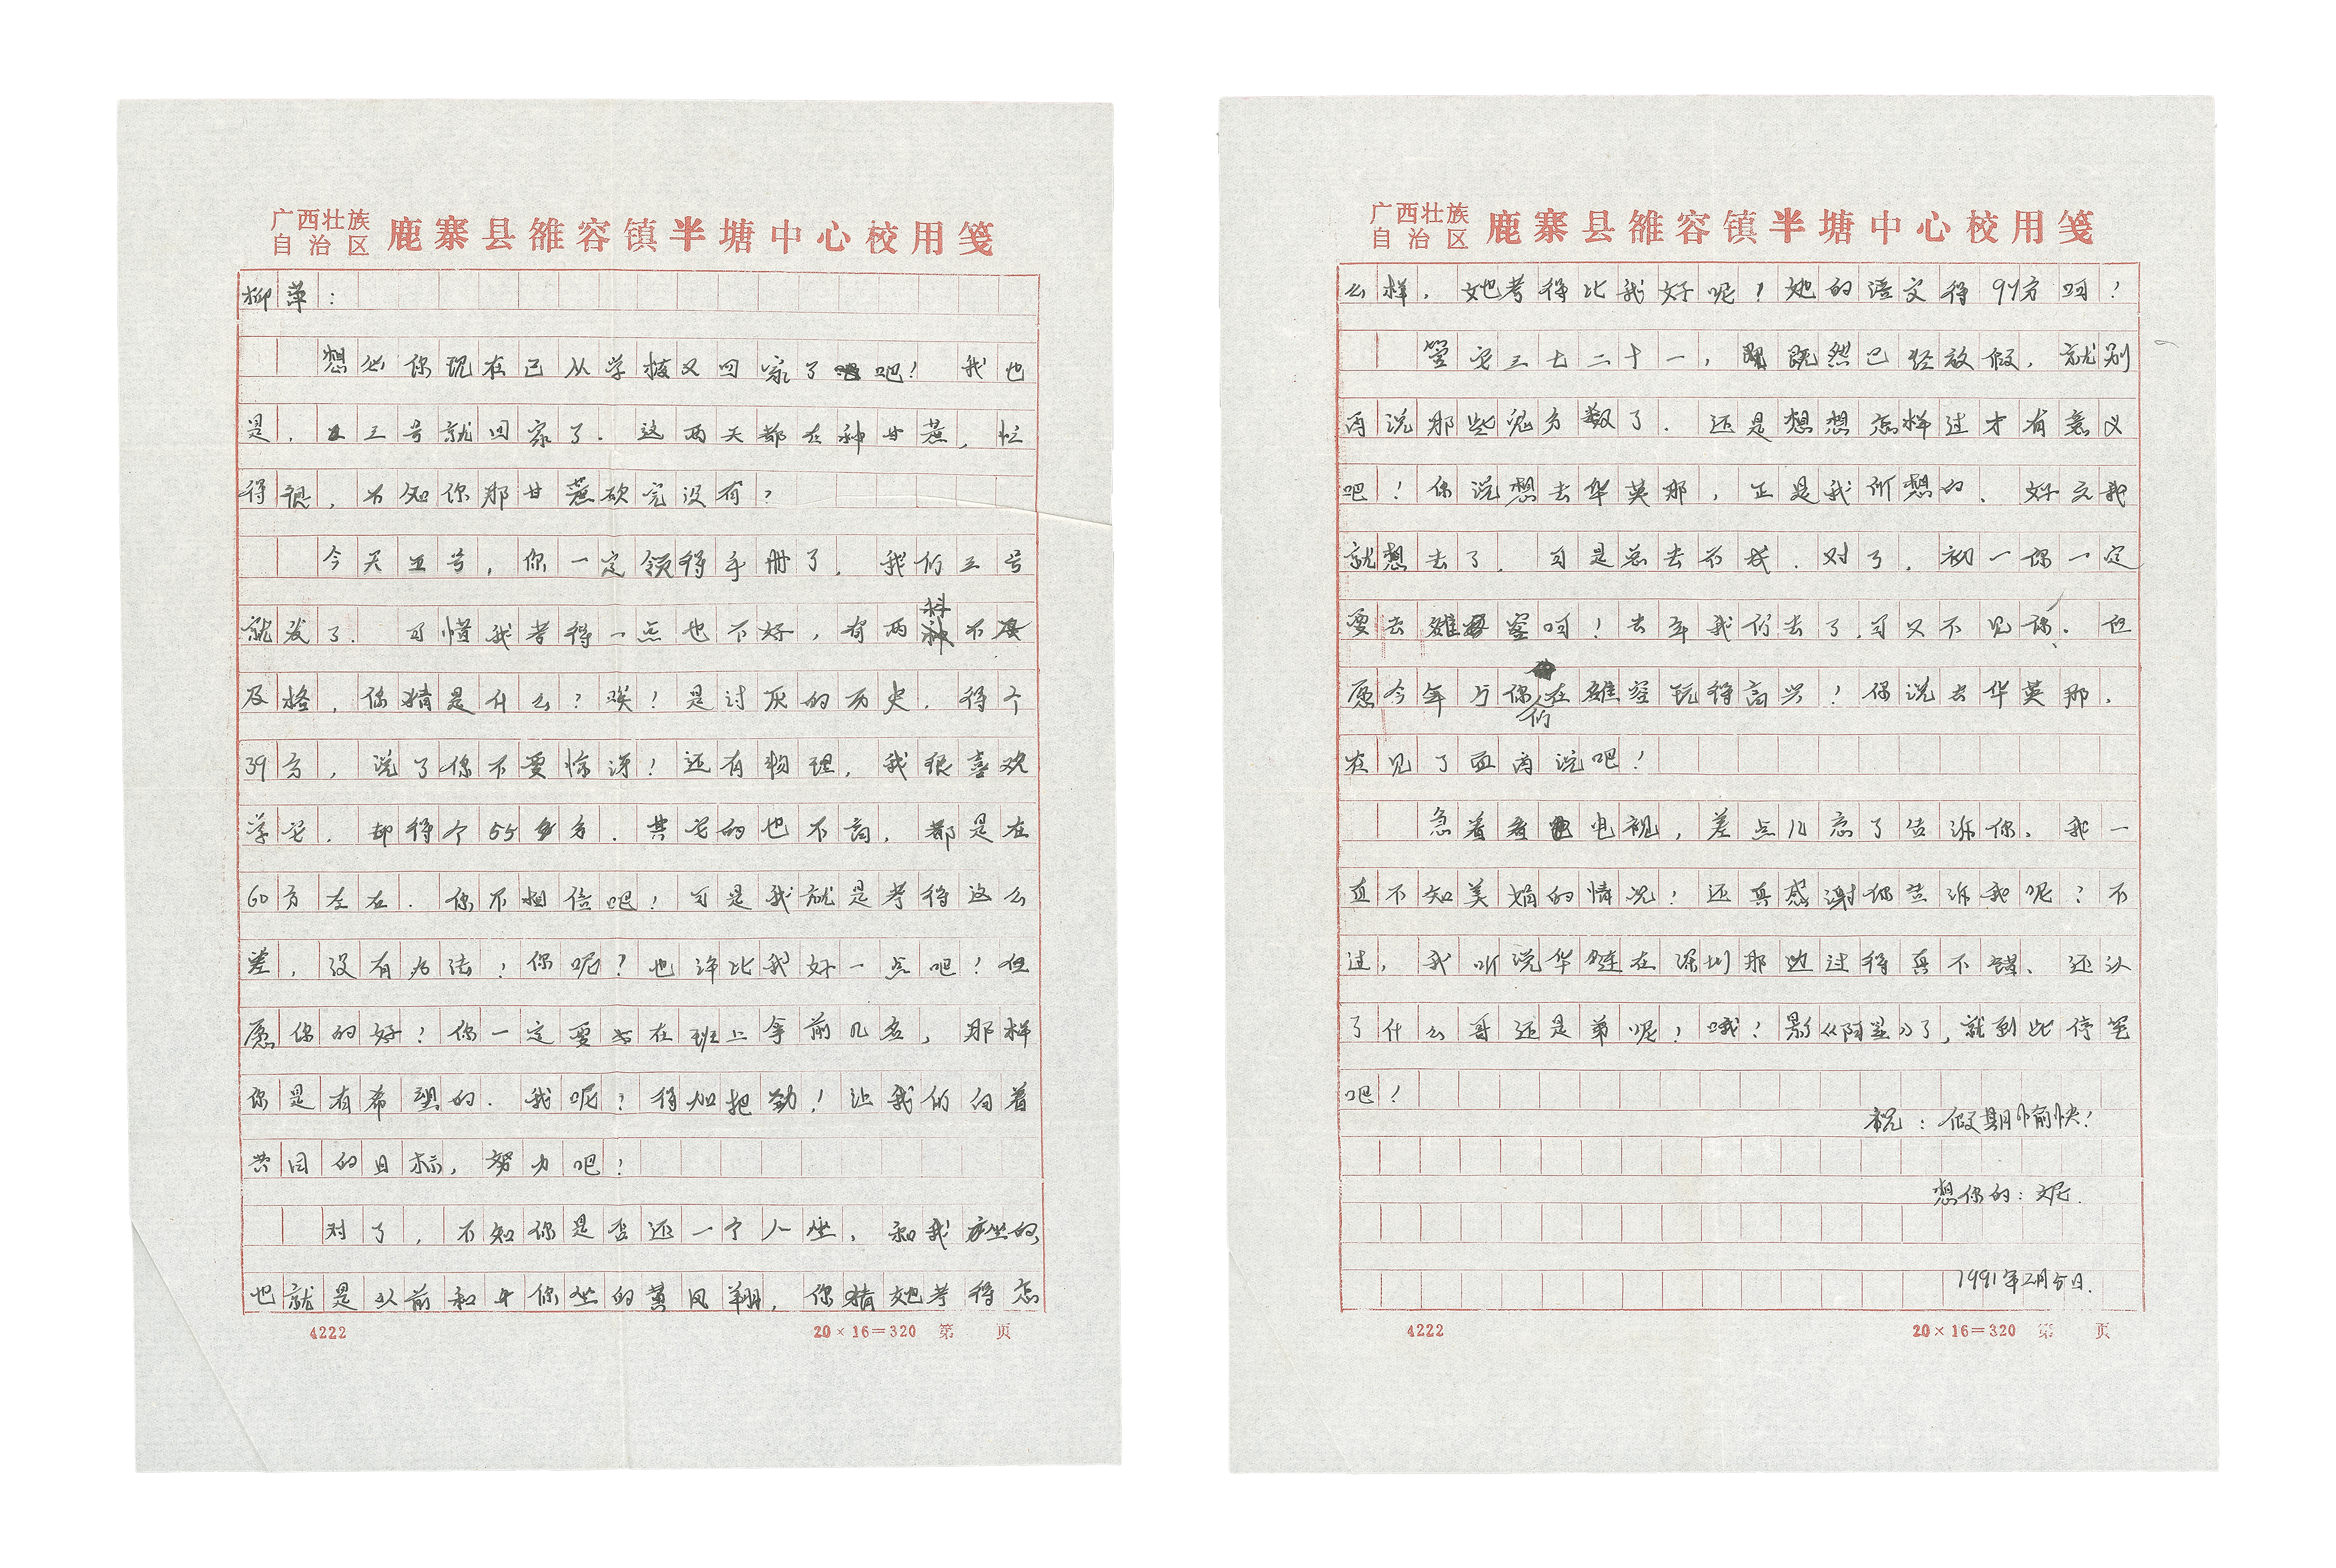 广西壮族
自治区
鹿寨县雒容镇半塘中心校用笺
柳萍：
想必你现在已从学校又回家了吧！我也
是，三号就回家了。这两天都在种甘蔗，忙
得很，不知你那甘蔗砍完没有？
今天五号，你一定领得手册了，我们三号
就发了。可惜我考得一点也不好，有两科不
及格，你猜是什么？唉！是讨厌的历史，得个
39分，说了你不要惊讶！还有物理，我很喜欢
学它，却得个55分。其它的也不高，都是在
60分左右。你不相信吧！可是我就是考得这么
差，没有办法；你呢？也许比我好一点吧！但
愿你的好！你一定要在班上拿前几名，那样
你是有希望的。我呢？得加把劲！让我们向着
共同的目标，努力吧！
对了，不知你是否还一个人坐，和我坐的，
也就是以前和你坐的黄凤翔，你猜她考得怎
4222
20×16=320 第 页
广西壮族
自治区
鹿寨县雒容镇半塘中心校用笺
么样，她考得比我好呢！她的语文得91分呵！
管它三七二十一，既然已经放假，就别
再说那些鬼分数了。还是想想怎样过才有意义
吧！你说想去华英那，正是我所想的，好久我
就想去了，可是总去不成。对了，初一你一定
要去雒容呵！去年我们去了，可又不见你，但
愿今年与你们在雒容玩得高兴！你说去华英那，
在见了面再说吧！
急着看电视，差点儿忘了告诉你，我一
直不知美娟的情况！还真感谢你告诉我呢！不
过，我听说华健在深圳那边过得真不错，还认
了什么哥还是弟呢！哦！影《阿星》了，就到此停笔
吧！
祝：假期愉快！
想你的：妮
1991年2月5日
4222
20×16=320 第 页